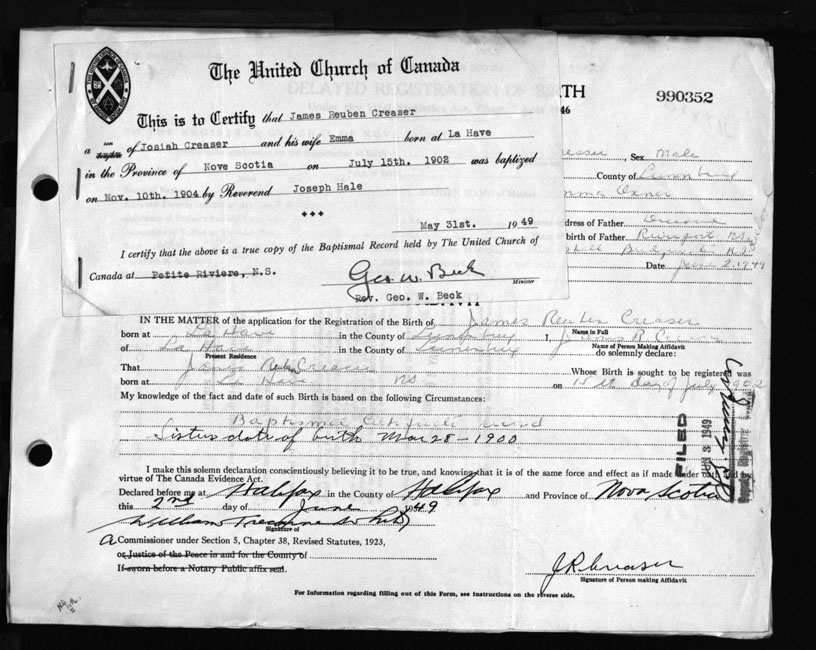 The United Church of Canada
This is to Certify that James Reuben Creaser
a son of Josiah Creaser and his wife Emma born at La Have
in the Province of Nove Scotia on July 15th. 1902 was baptized
on Nov. 10th. 1904 by Reverend Joseph Hale
+++
May 31st. 1949
I certify that the above is a true copy of the Baptismal Record held by The United Church of
Canada at Petite Riviere, N.S.
Geo. W. Beck
Minister
Rev. Geo. W. Beck
DELAYED REGISTRATION OF
TH
46
990352
Sex Male
County of
mma Oxner
dress of Father
birth of Father
Date June 2, 1949
IN THE MATTER of the application for the Registration of the Birth of, James Reuben Creaser
Name in Full
born at La Have in the County of Lunenburg I, James R Creaser
Name of Person Making Affidavit
of La Have in the County of Lunenburg do solemnly declare:
Present Residence
That James Creaser Whose Birth is sought to be registered was
born at La Have NS on 15th day of July 1902
My knowledge of the fact and date of such Birth is based on the following Circumstances:
Baptismal Certificate
Sisters date of birth Mar 28-1900
FILED
1949
I make this solemn declaration conscientiously believing it to be true, and knowing that it is of the same force and effect as if made under oath and by
virtue of The Canada Evidence Act.
Declared before me at Halifax in the County of Halifax and Province of Nova Scotia
this 2nd day of June 1949
Signature of
a Commissioner under Section 5, Chapter 38, Revised Statutes, 1923,
or Justice of the Peace in and for the County of
If sworn before a Notary Public affix seal.
J R Creaser
Signature of Person making Affidavit
For Information regarding filling out of this Form, see instructions on the reverse side.